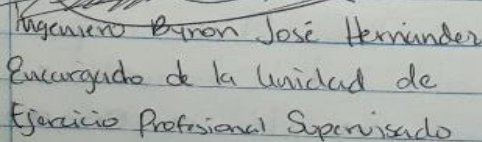 Ingeniero Byron José Hernández
Encargado de la Unidad de
Ejercicio Profesional Supervisado